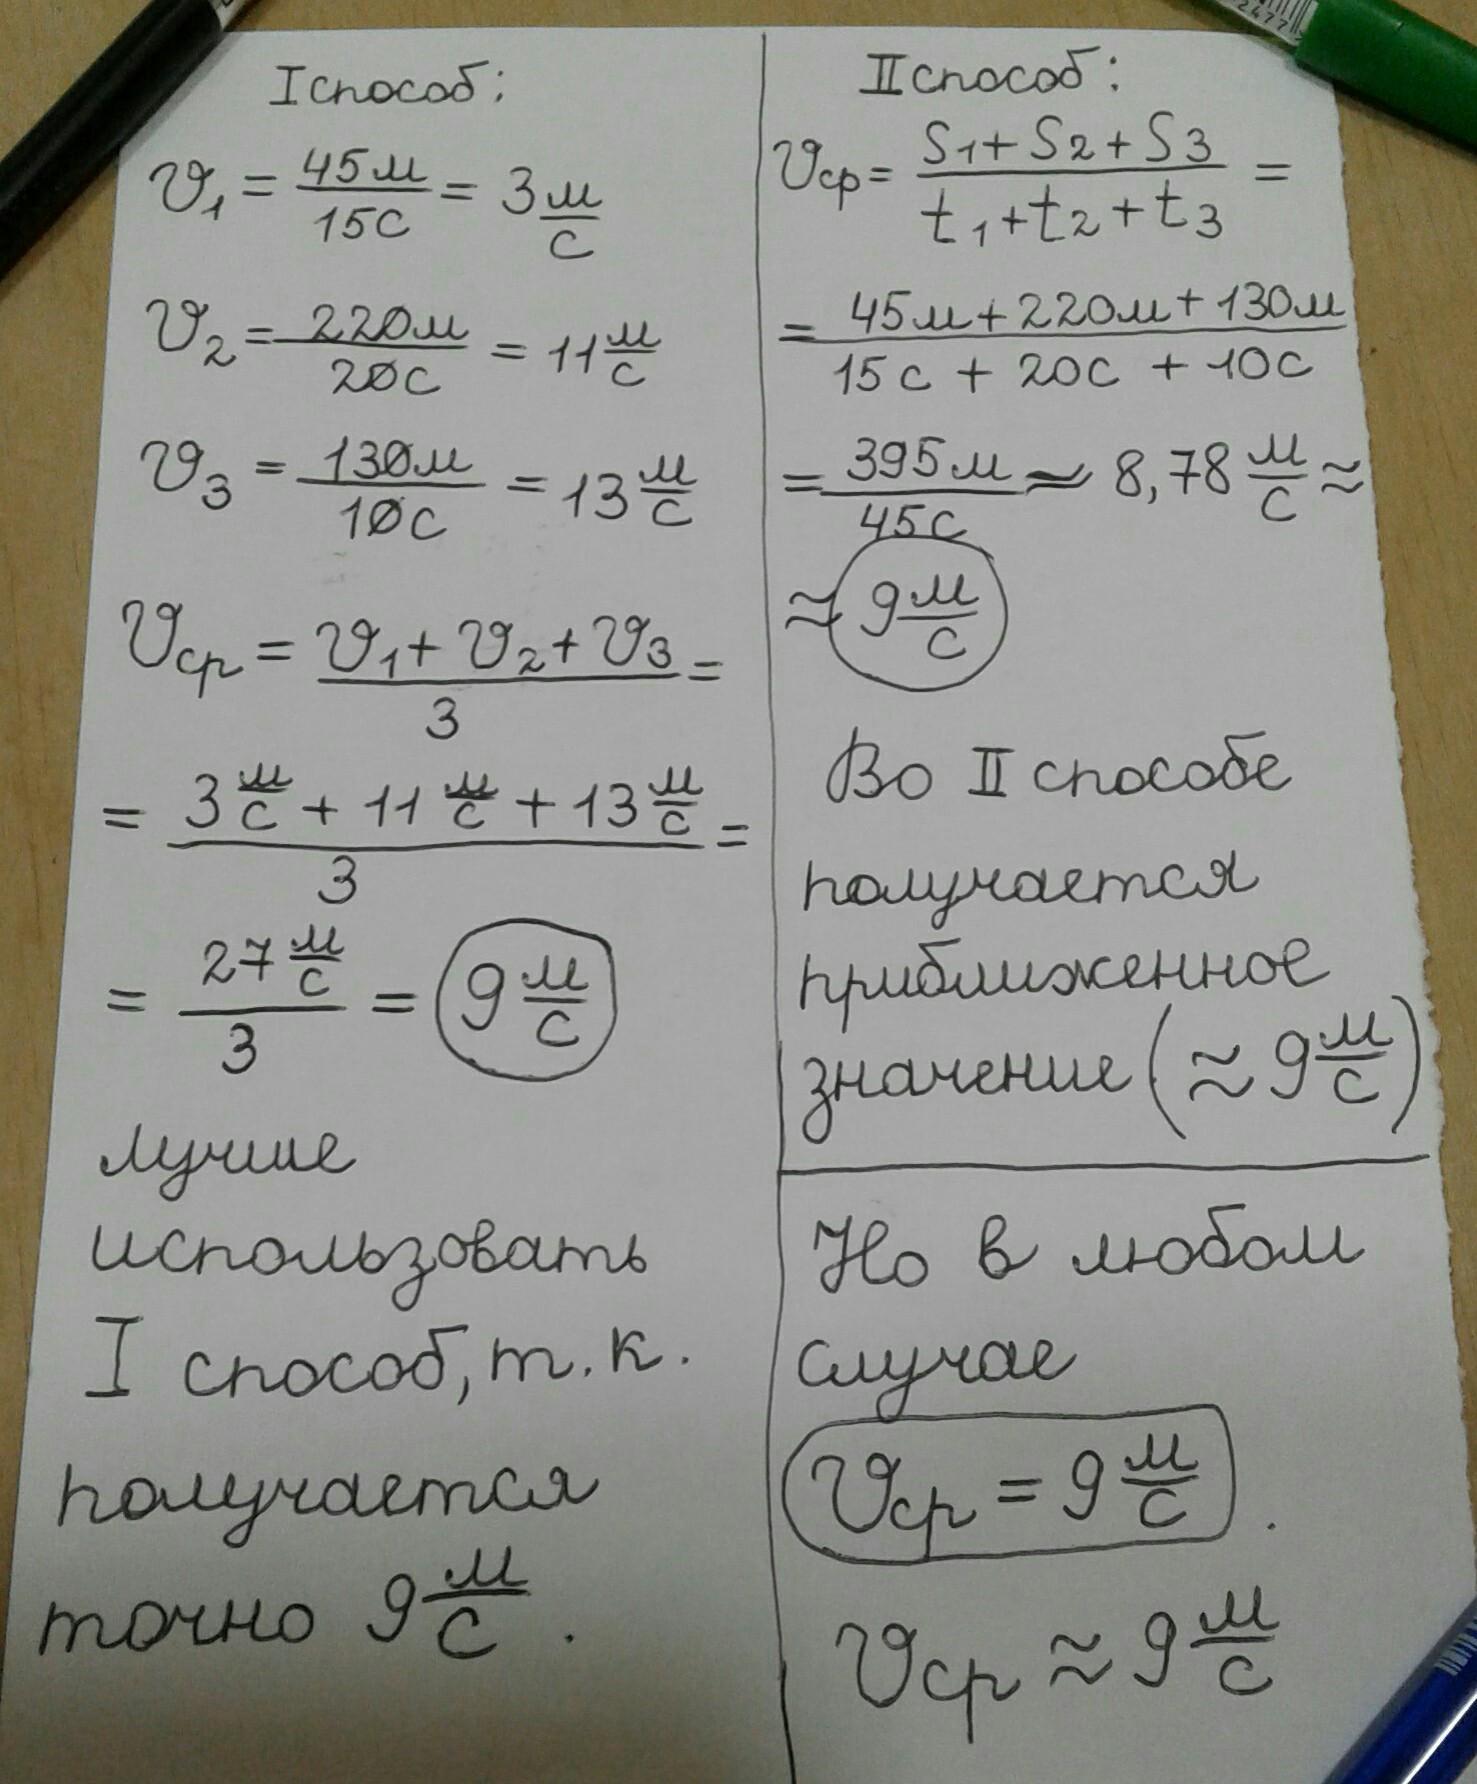 I способ:
V₁ = 45м/15с = 3 м/с
V₂ = 220м/20с = 11 м/с
V₃ = 130м/10с = 13 м/с
Vср = (V₁ + V₂ + V₃)/3 =
= (3 м/с + 11 м/с + 13 м/с)/3 =
= (27 м/с)/3 = 9 м/с
лучше
использовать
I способ, т.к.
получается
точно 9 м/с.
II способ:
Vср = (S₁ + S₂ + S₃)/(t₁ + t₂ + t₃) =
= (45м + 220м + 130м)/(15с + 20с + 10с)
= 395м/45с ≈ 8,78 м/с ≈
≈ 9 м/с
Во II способе
получается
приближенное
значение (≈ 9 м/с)
Но в любом
случае
Vср = 9 м/с.
Vср ≈ 9 м/с
2477